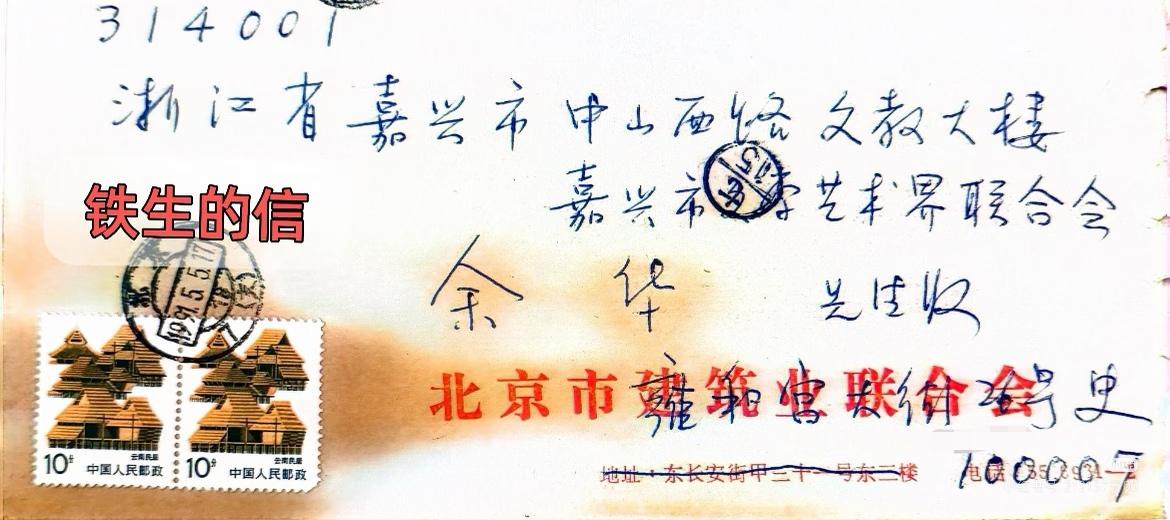 314001
浙江省嘉兴市中山西路文教大楼
嘉兴市文学艺术界联合会
铁生的信
余华 先生收
1991.5.17
北京市建筑业联合会
雍和宫大街26号 史
地址：东长安街甲三十一号东二楼 电话
100007
云南民居 云南民居
10分 中国人民邮政 10分 中国人民邮政